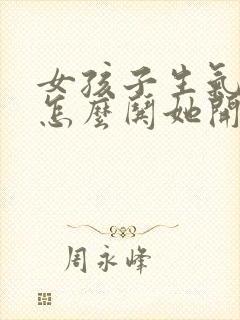 女孩子生氣
怎麼鬨她開
周永峰